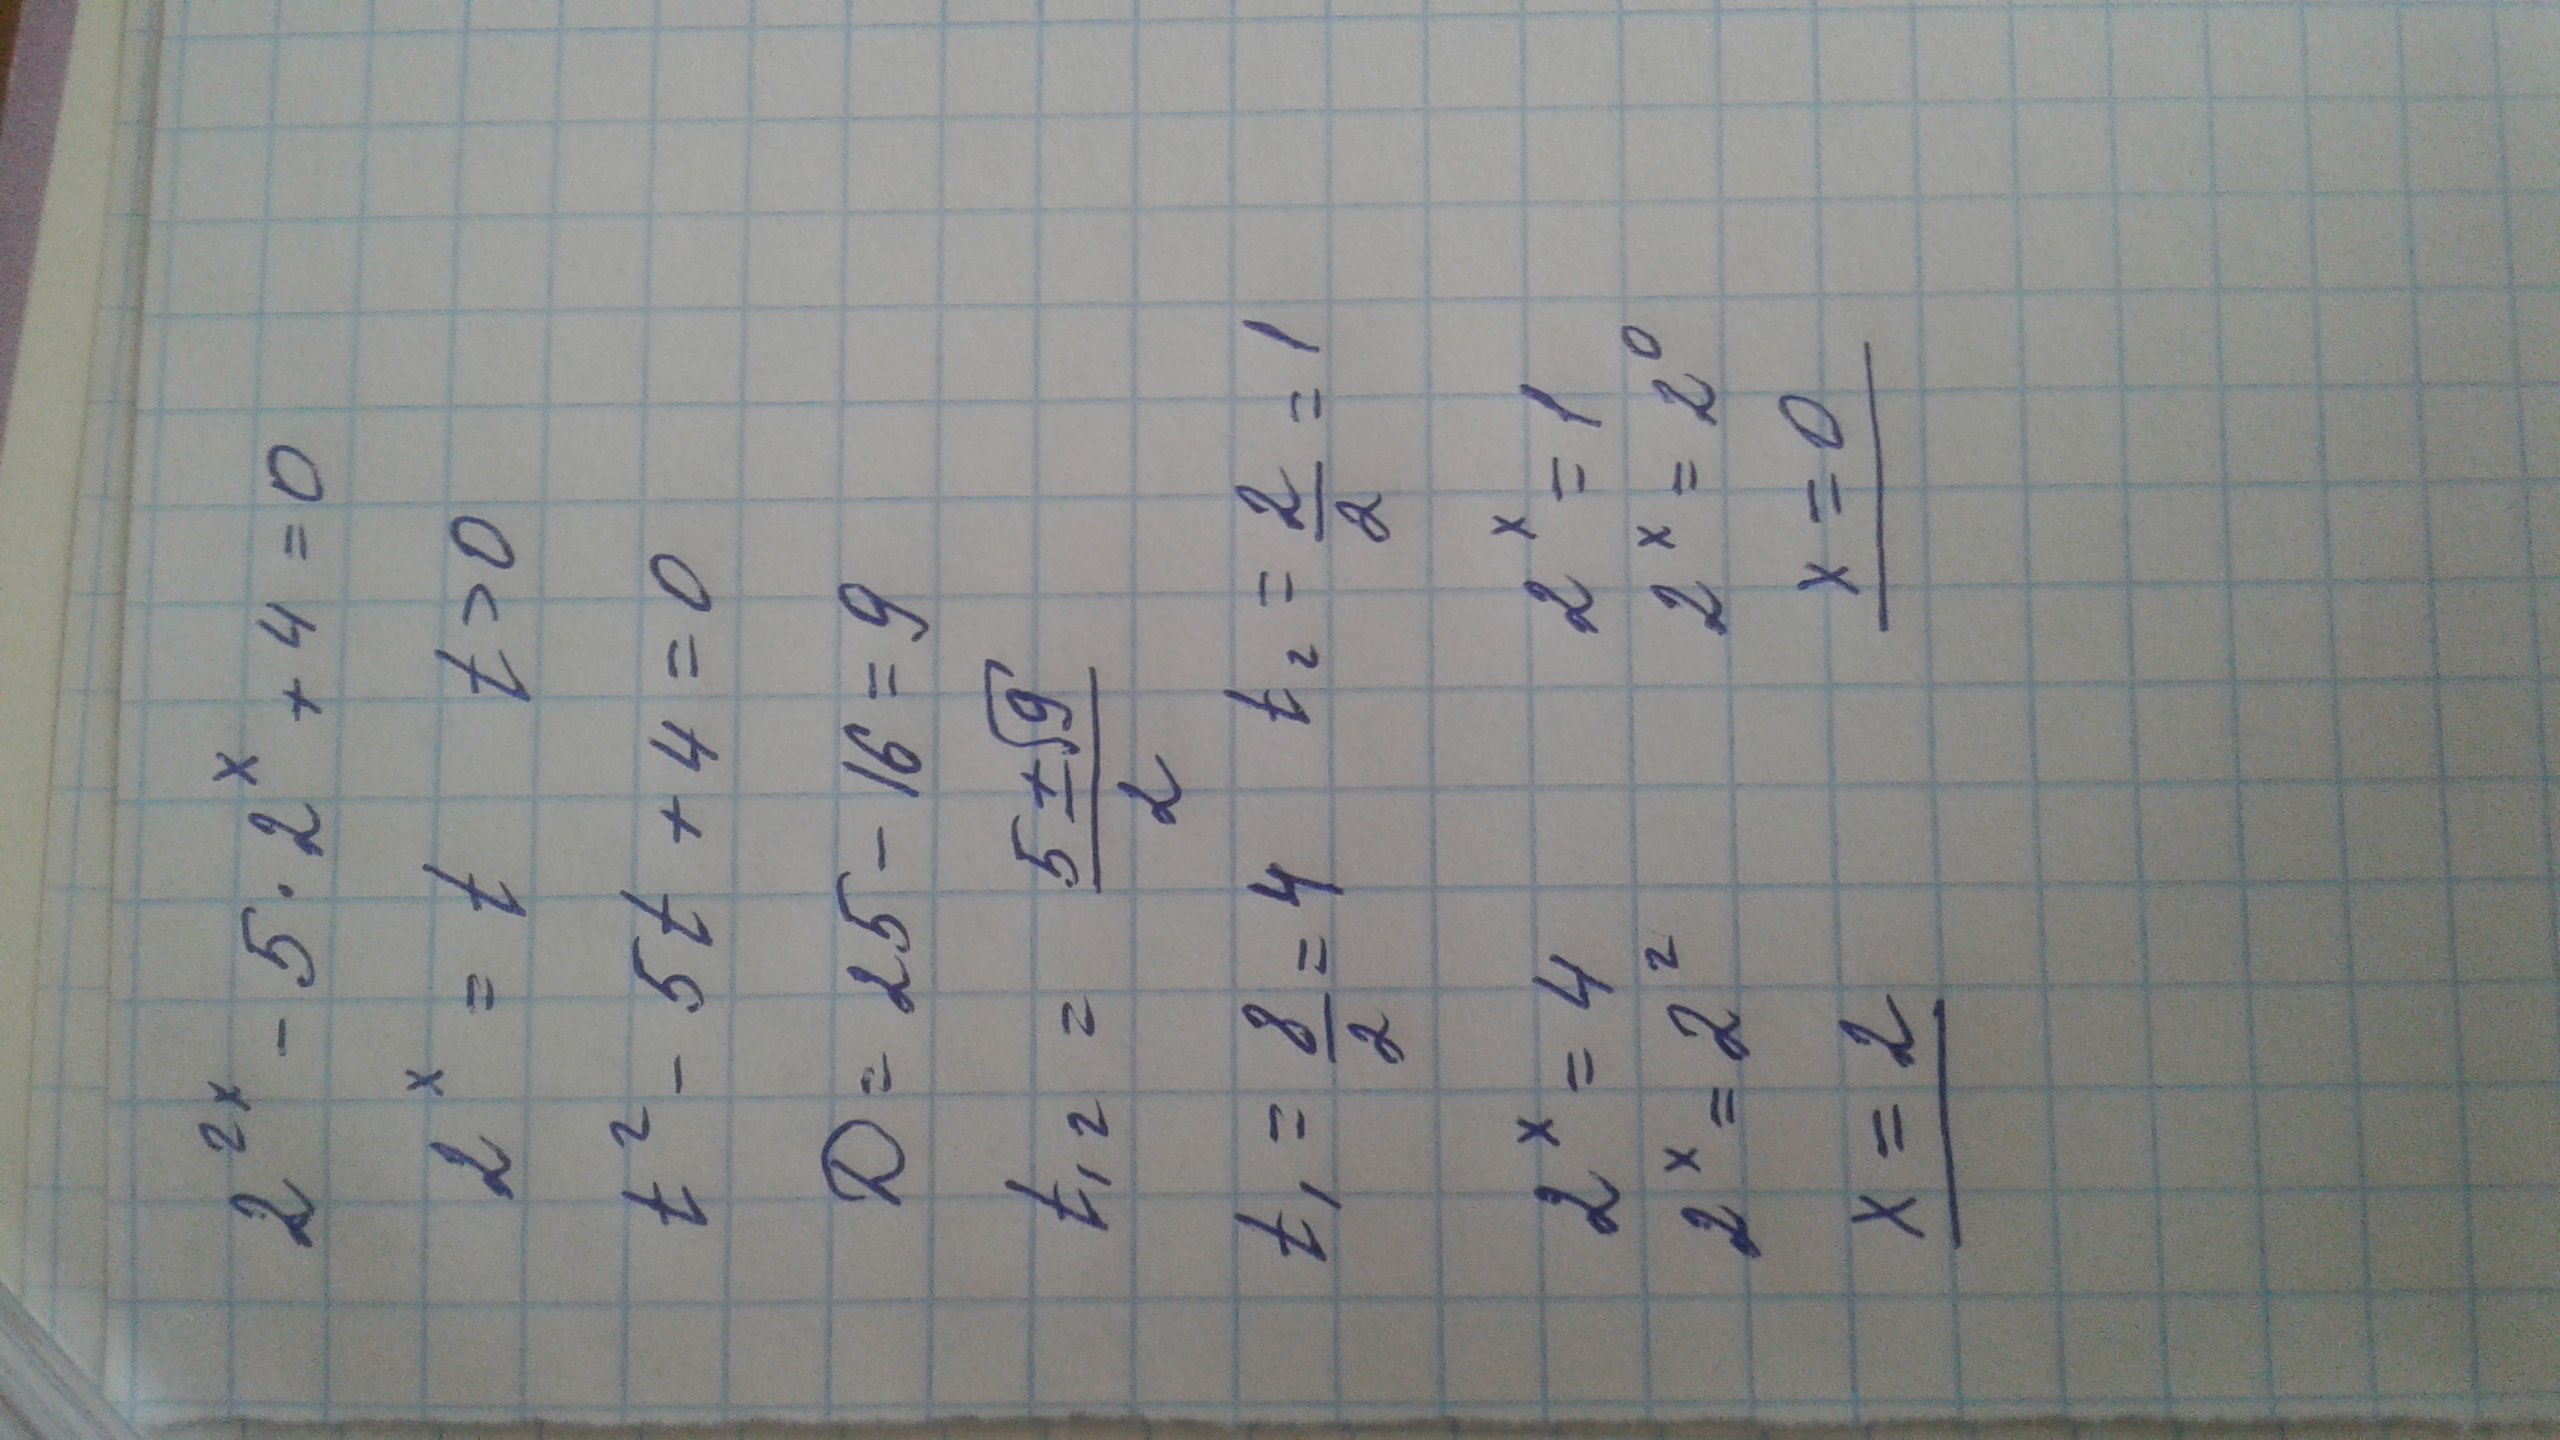 2^{2x} - 5 · 2^x + 4 = 0
2^x = t t > 0
t^2 - 5t + 4 = 0
D = 25 - 16 = 9
t_{12} = \frac{5 ± √9}{2}
t_1 = \frac{8}{2} = 4 t_2 = \frac{2}{2} = 1
2^x = 4 2^x = 1
2^x = 2^2 2^x = 2^0
x = 2 x = 0